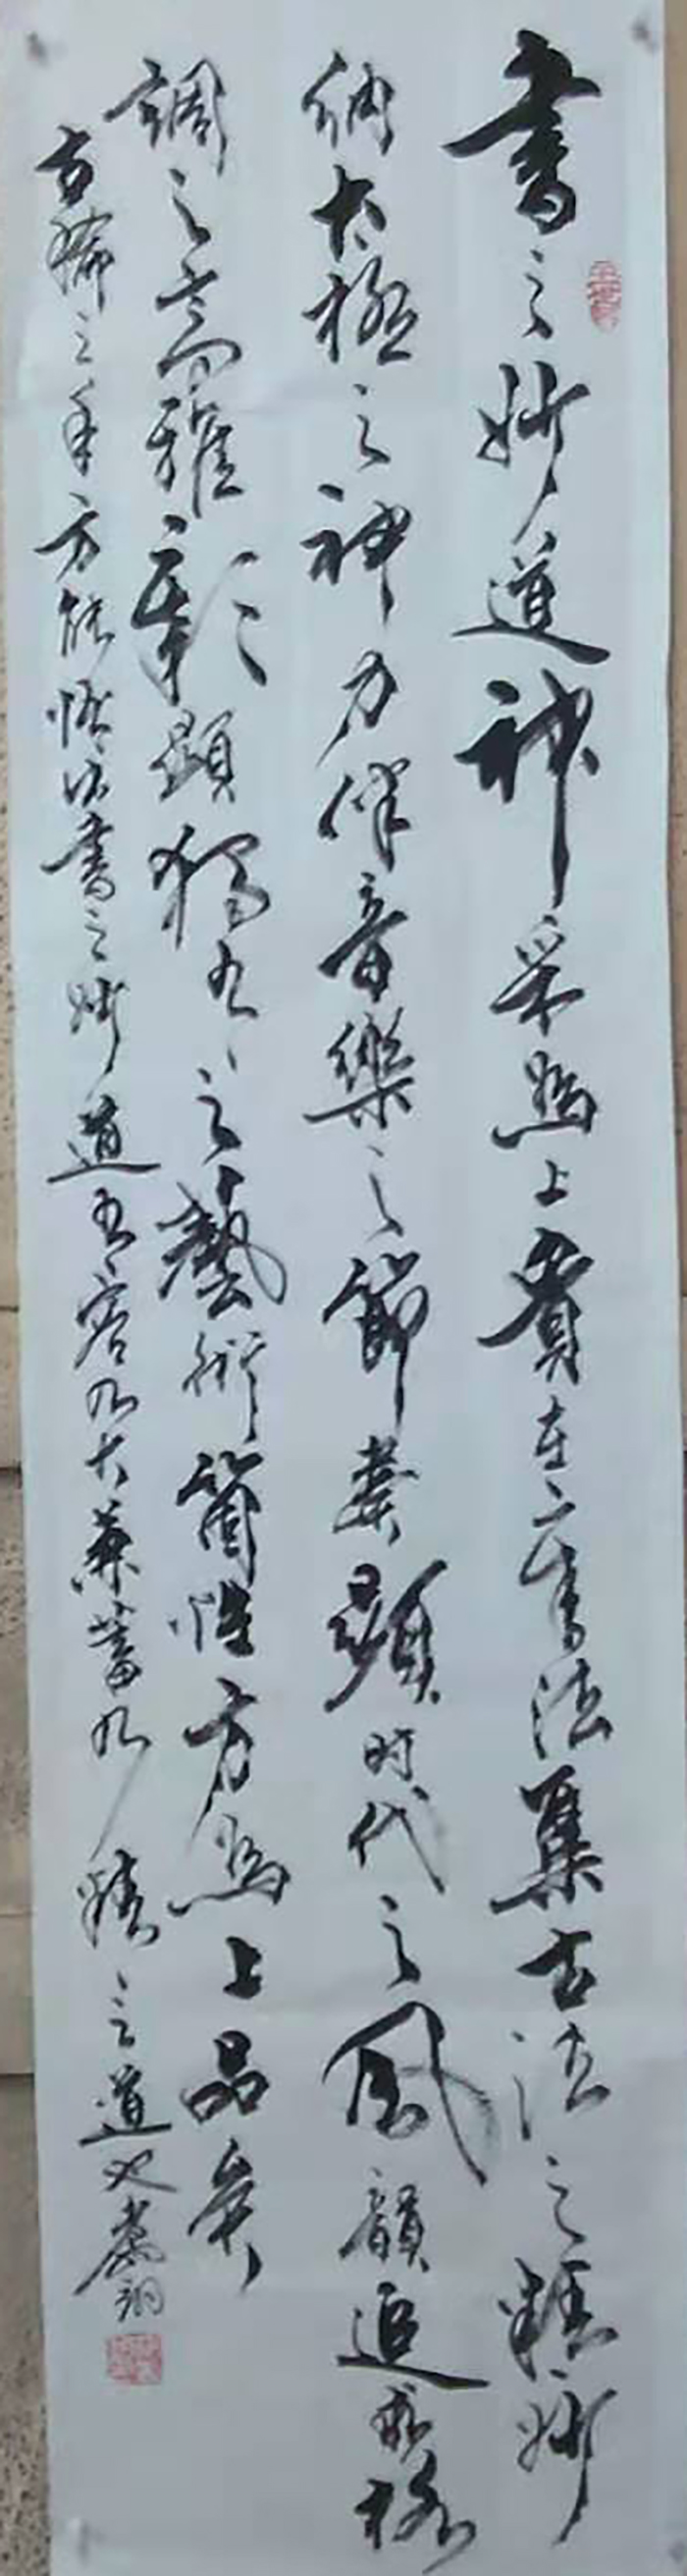 書之妙道神采為上貴在書法集古法之精妙
納太極之神力伴音樂之節奏顯時代之風韻追求格
調之高雅彰顯獨有之藝術箇性方為上品矣
古稀之年方能悟出書之妙道有容乃大兼蓄乃精之道也